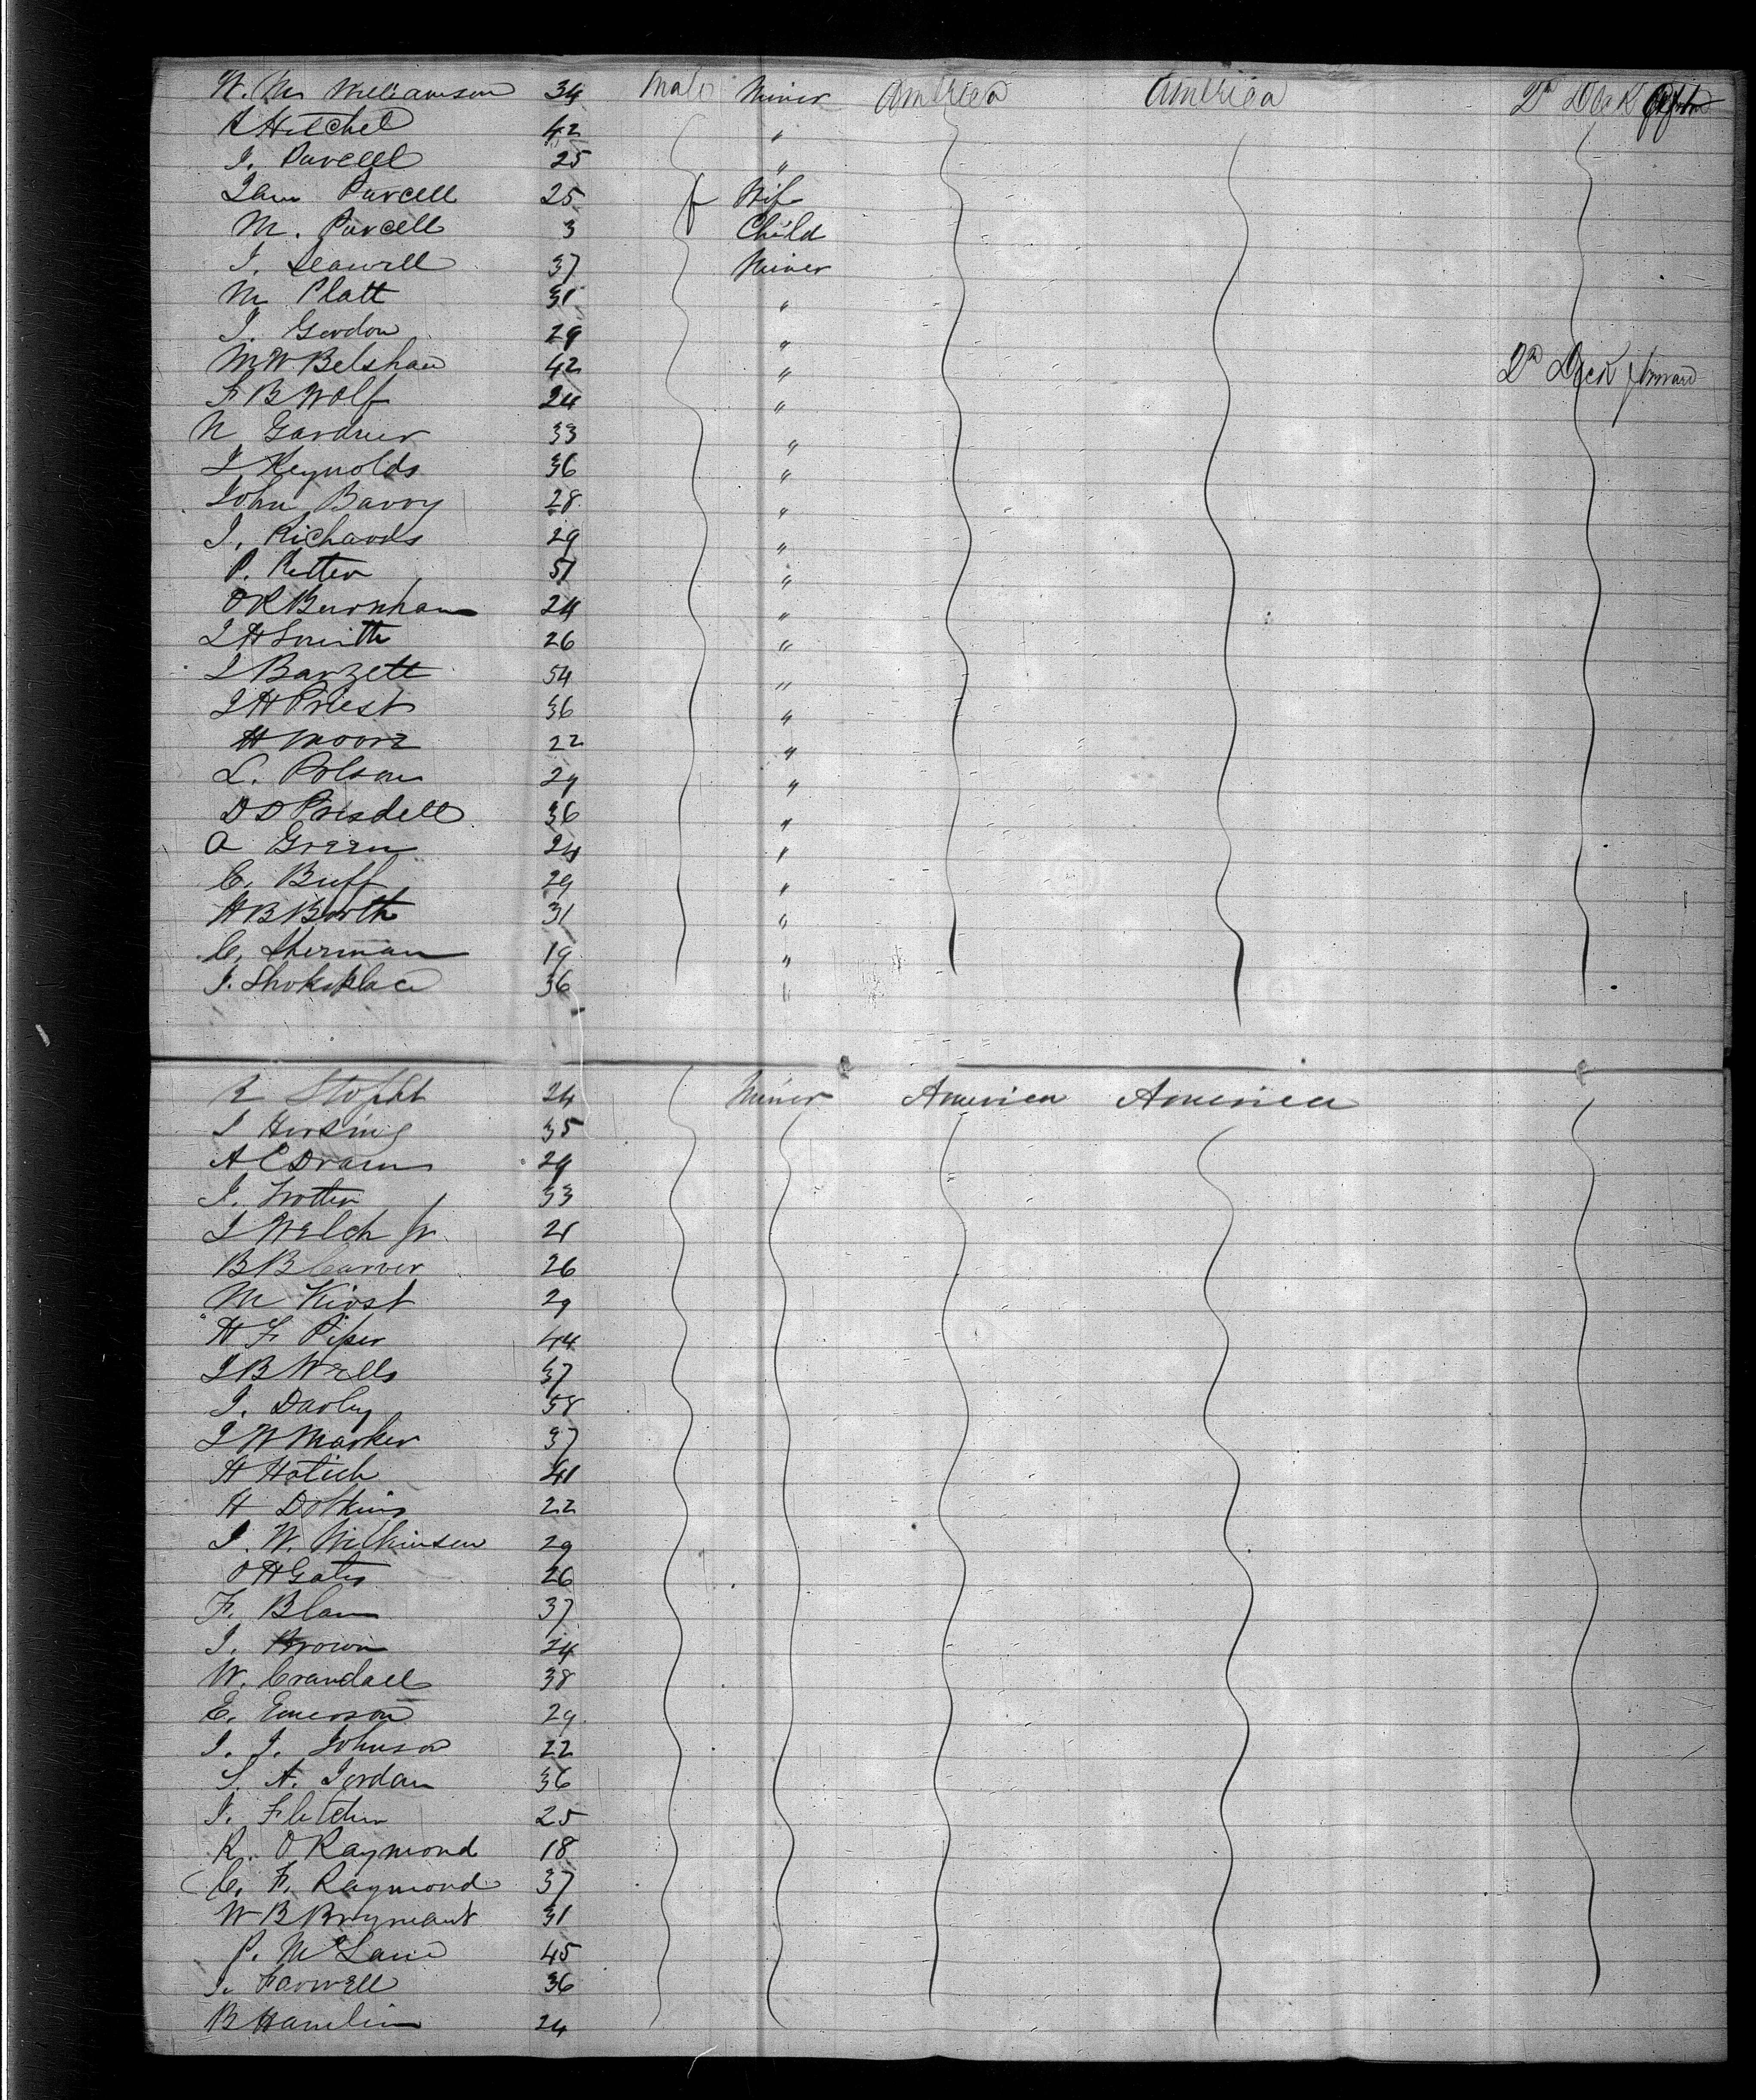 W. M. Williamson 34 Male Miner America America 2nd Deck
A Hitchel 42 "
J. Purcell 25 "
Jane Purcell 25 f Wife
M. Purcell 3 Child
J. Seawell 37 Miner
M Platt 31 "
J. Gordon 29 "
M W Belshaw 42 " 2nd Deck forward
F B Wolf 24 "
N Gardner 33 "
J Reynolds 36 "
John Barry 28 "
J. Richards 29 "
P. Retter 51 "
O R Burnham 24 "
J H Smith 26 "
J Barzett 54 "
J H Priest 36 "
H Moore 22 "
L. Polson 29 "
D D Prisdell 36 "
A Green 24 "
C. Buff 29 "
H B Booth 31 "
C. Sherman 19 "
J. 36 "
R 24 Miner America America
J Hersing 35
A C Drain 29
J. Trotter 33
J Welch Jr. 21
B B Carver 26
M Kirst 29
H F Piper 44
J B Wells 37
J. Darby 58
J W Marker 37
H Hatich 41
H Dotkins 22
J. W. Wilkinson 29
O H Gates 26
F. Blam 37
J. Brown 24
W. Crandall 38
E. Emerson 29
J. J. Johnson 22
S. A. Jordan 36
J. Fletcher 25
R. O Raymond 18
C. F. Raymond 37
W B Brymant 31
P. McLane 45
J. Farwell 36
B Hamlin 24